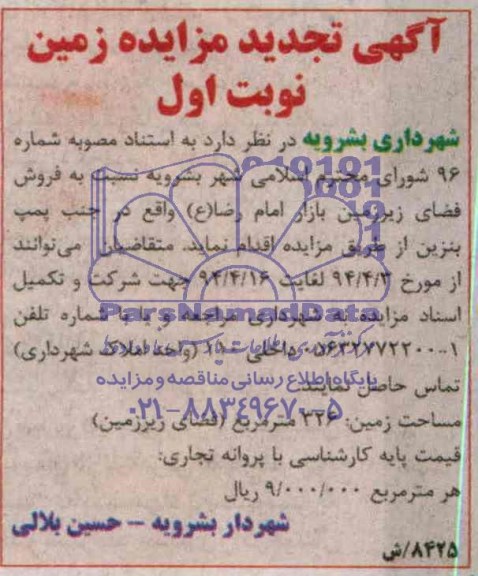 آگهی تجدید مزایده زمین
نوبت اول
شهرداری بشرویه در نظر دارد به استناد مصوبه شماره
۹۶ شورای محترم اسلامی شهر بشرویه نسبت به فروش
فضای زیرزمین بازار امام رضا(ع) واقع در جنب پمپ
بنزین از طریق مزایده اقدام نماید. متقاضیان می‌توانند
از مورخ ۹۴/۴/۳ لغایت ۹۴/۴/۱۶ جهت شرکت و تکمیل
اسناد مزایده به شهرداری مراجعه و یا با شماره تلفن
۰۵۶۳۲۷۷۲۲۰۰-۱ داخلی (واحد املاک شهرداری)
تماس حاصل نمایند.
مساحت زمین: ۳۲۶ مترمربع (فضای زیرزمین)
قیمت پایه کارشناسی با پروانه تجاری:
هر مترمربع ۹/۰۰۰/۰۰۰ ریال
شهردار بشرویه – حسین بلالی
۸۴۲۵/ش
ParsNamadData
پایگاه اطلاع رسانی مناقصه و مزایده
۰۲۱-۸۸۳۴۹۶۷۰-۵